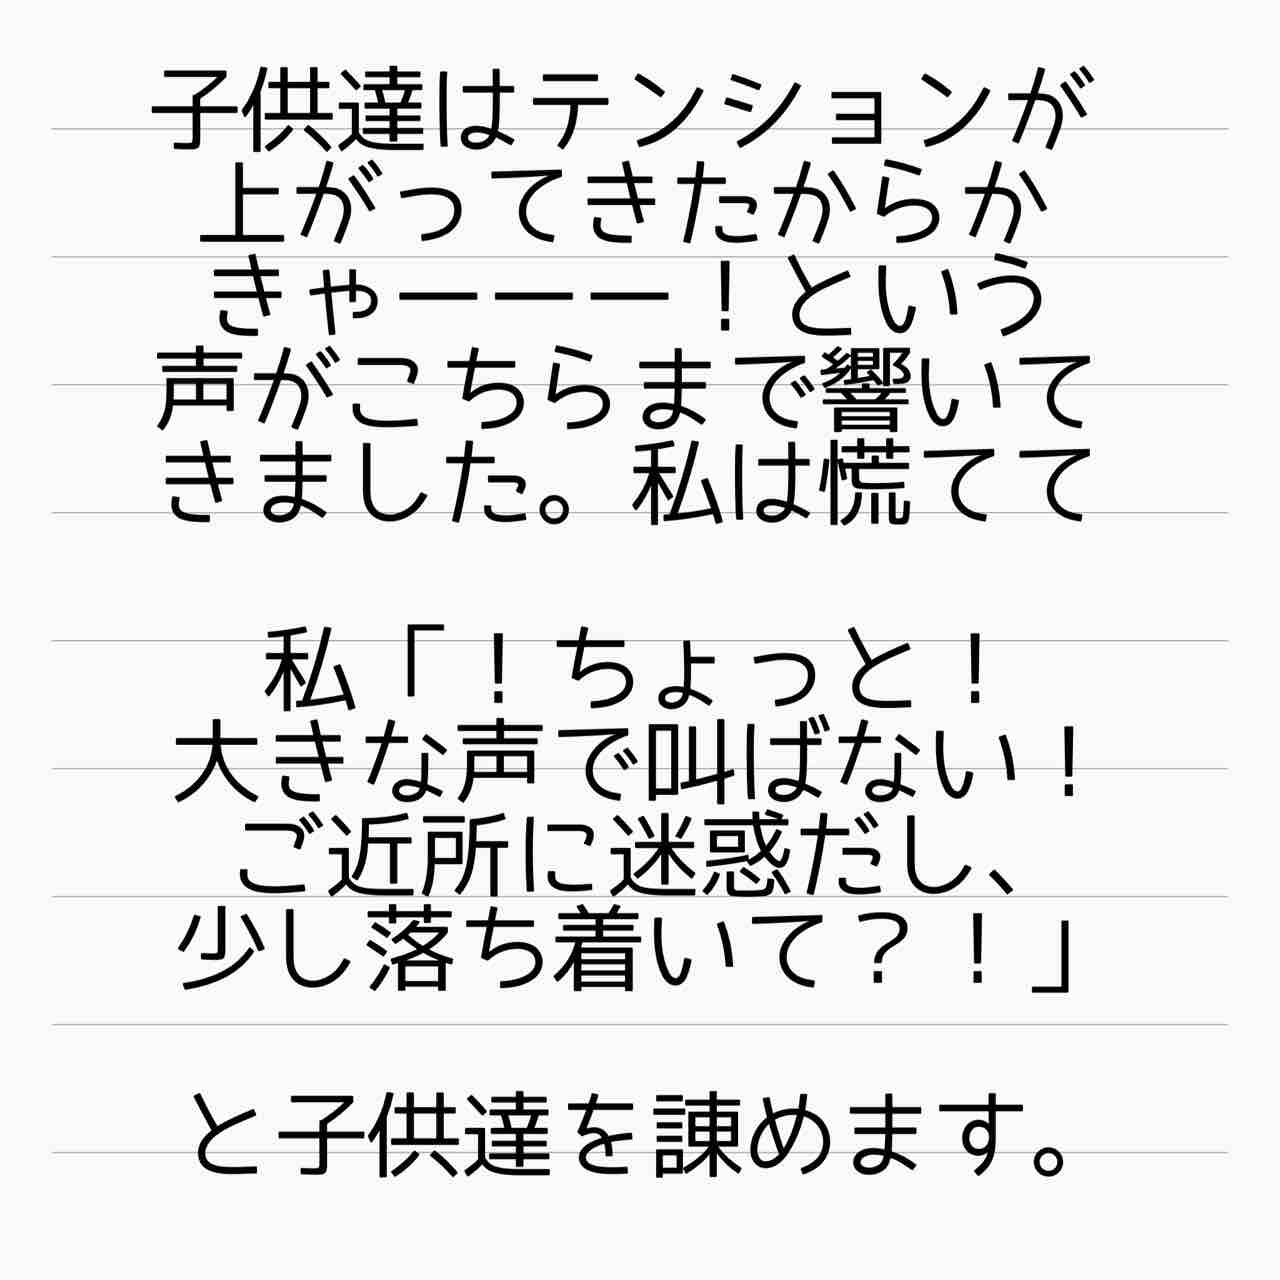 子供達はテンションが
上がってきたからか
きゃーーー！という
声がこちらまで響いて
きました。私は慌てて
私「！ちょっと！
大きな声で叫ばない！
ご近所に迷惑だし、
少し落ち着いて？！」
と子供達を諌めます。